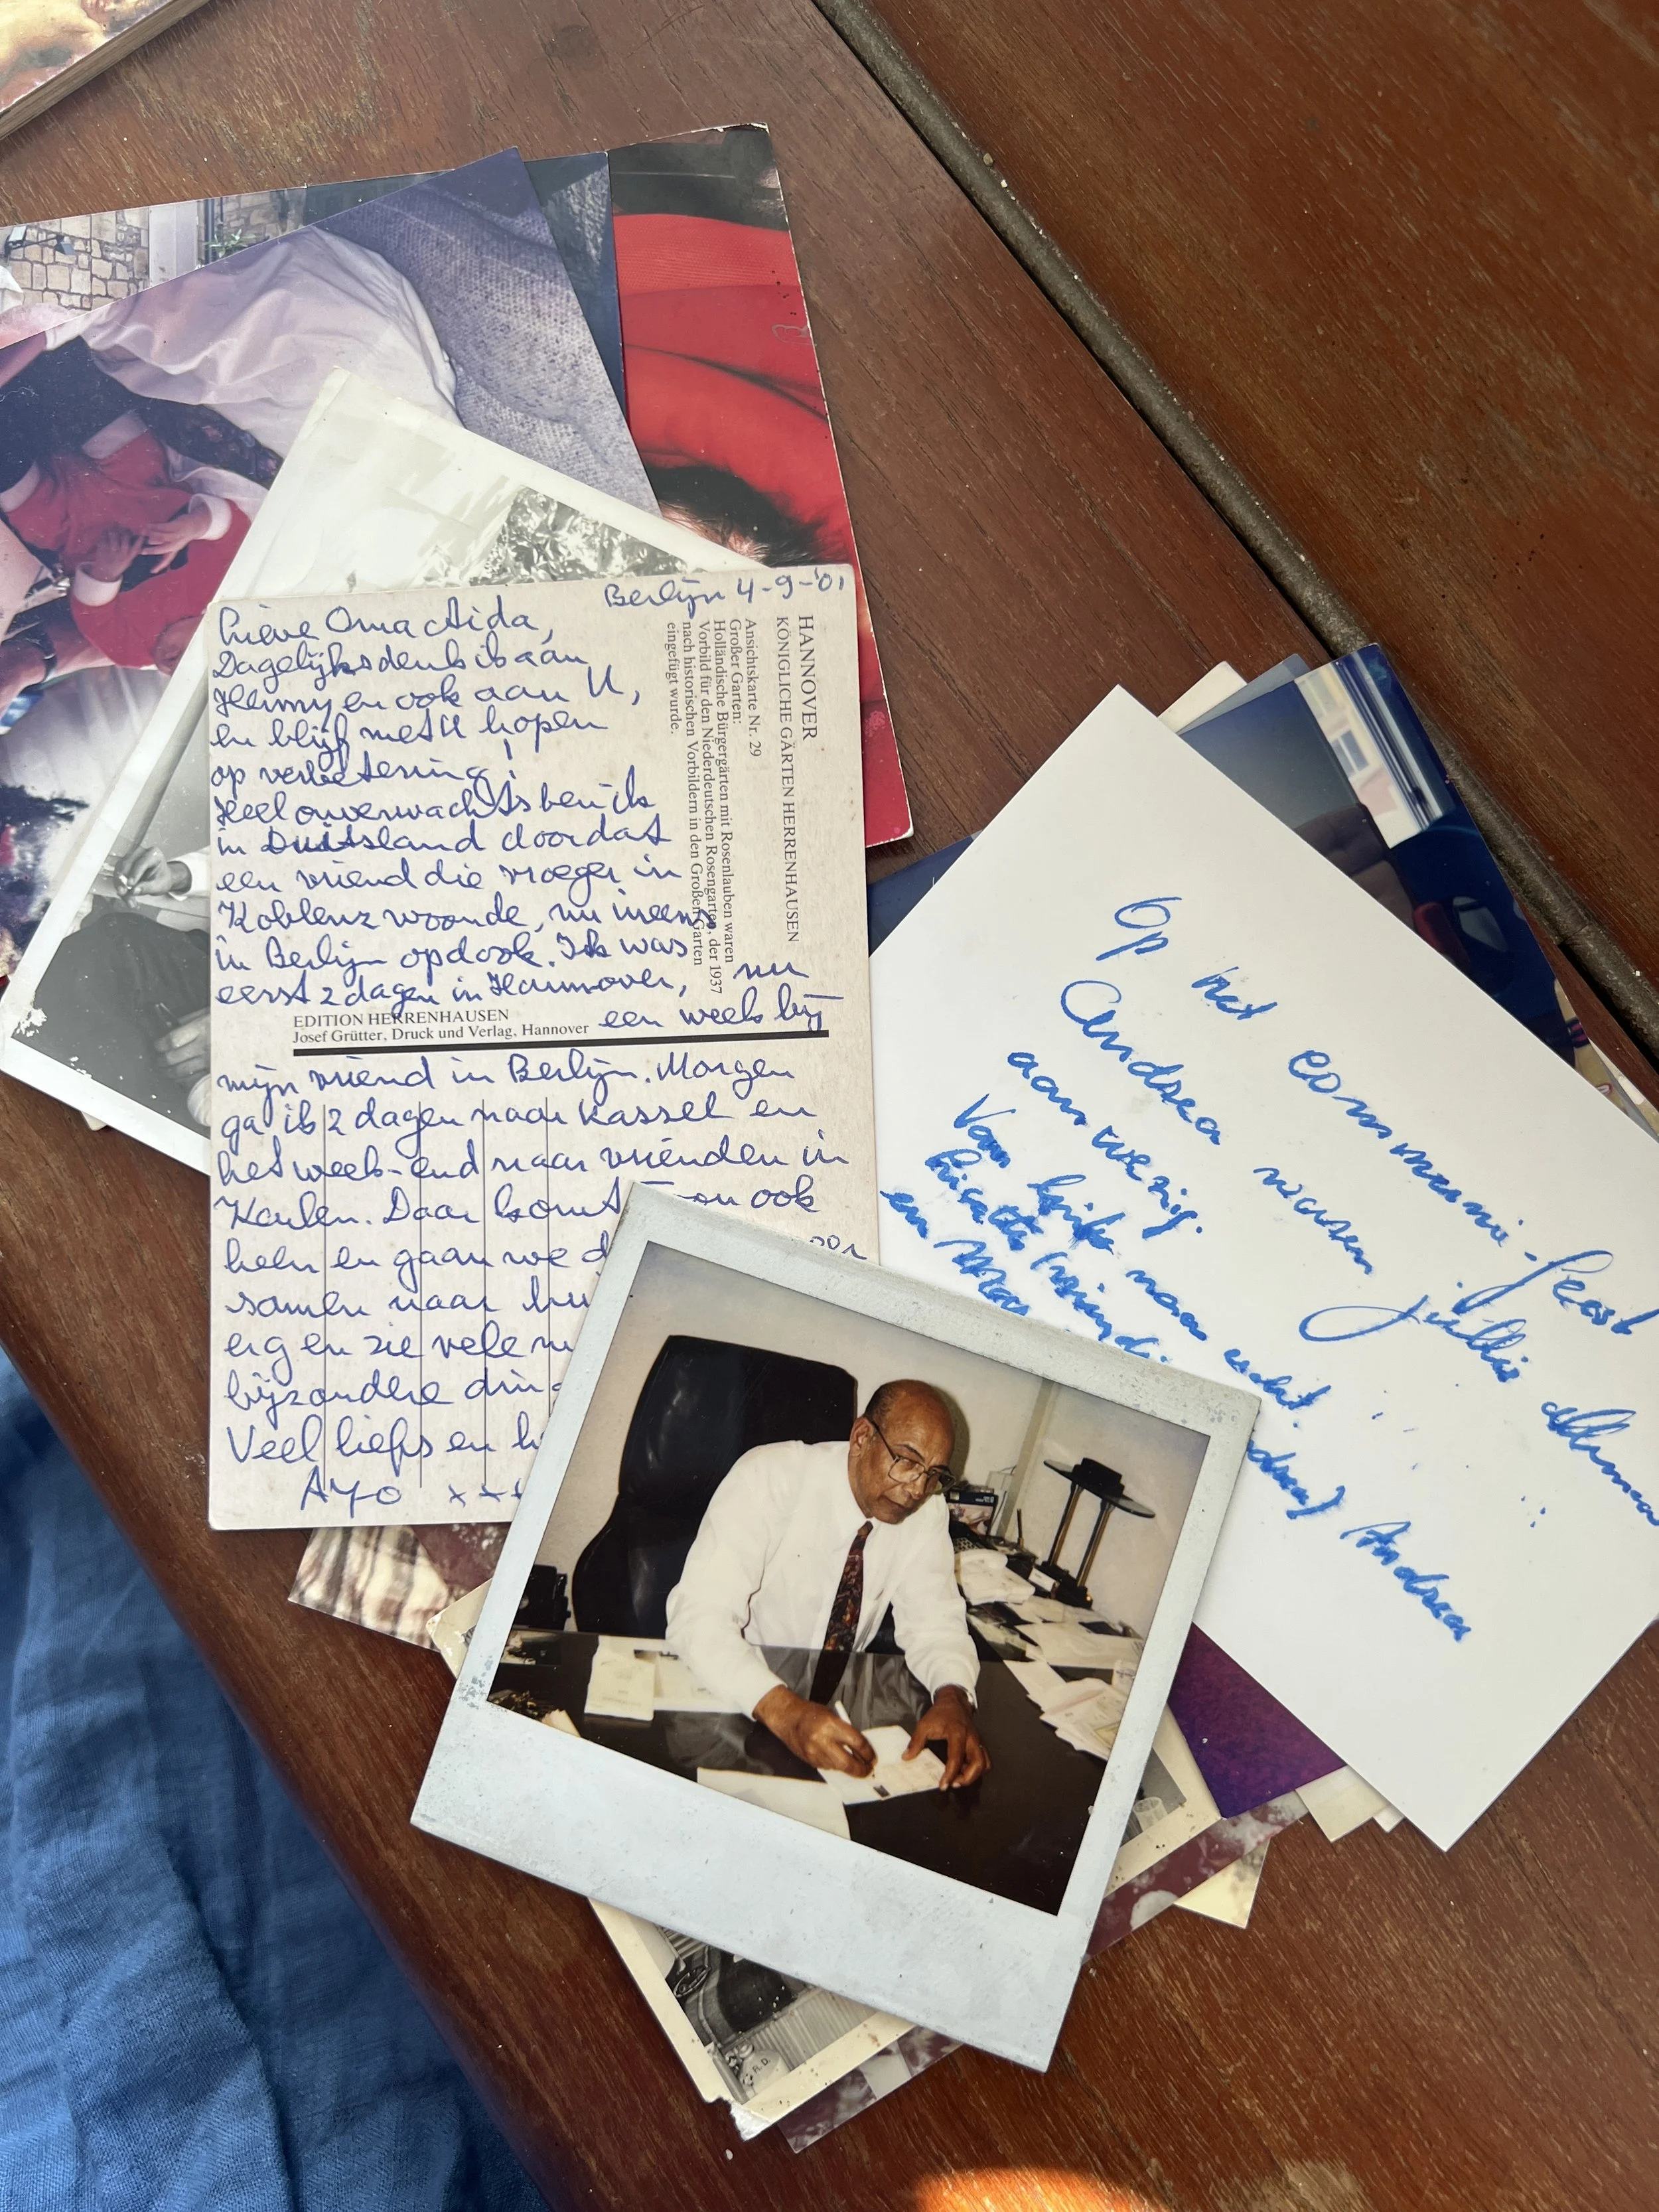 Berlijn 4-9-'01
Lieve Oma Aida,
Dagelijks denk ik aan
Henny en ook aan U,
en blijf met U hopen
op verbetering!
Heel onverwachts ben ik
in Duitsland doordat
een vriend die vroeger in
Koblenz woonde, nu ineens
in Berlijn opdook. Ik was
eerst 2 dagen in Hannover, nu
een week bij
mijn vriend in Berlijn. Morgen
ga ik 2 dagen naar Kassel en
het week-end naar vrienden in
Keulen. Daar komt ook
en gaan we
samen naar
erg en zie vele
bijzondere
Veel liefs en
AYO xxx
HANNOVER
KÖNIGLICHE GÄRTEN HERRENHAUSEN
Ansichtskarte Nr. 29
Großer Garten:
Holländische Bürgergärten mit Rosenlauben waren
Vorbild für den Niederdeutschen Rosengarten, der 1937
nach historischen Vorbildern in den Großen Garten
eingefügt wurde.
EDITION HERRENHAUSEN
Josef Grütter, Druck und Verlag, Hannover
Op het communie-feest
Andrea waren jullie allemaal
aanwezig.
Van links naar recht.
Andrea
en